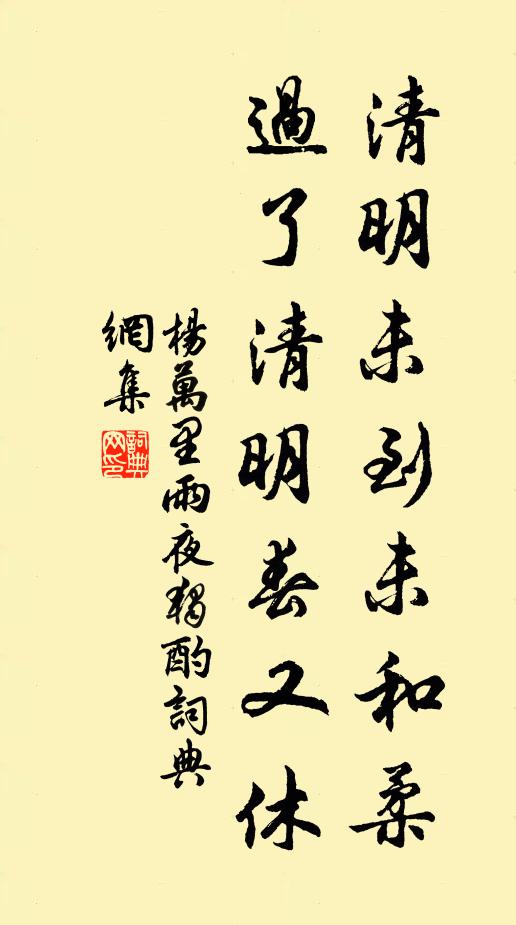 清明未到未和柔
過了清明春又休
楊萬里雨夜獨酌詞典
網集
詞典
网印